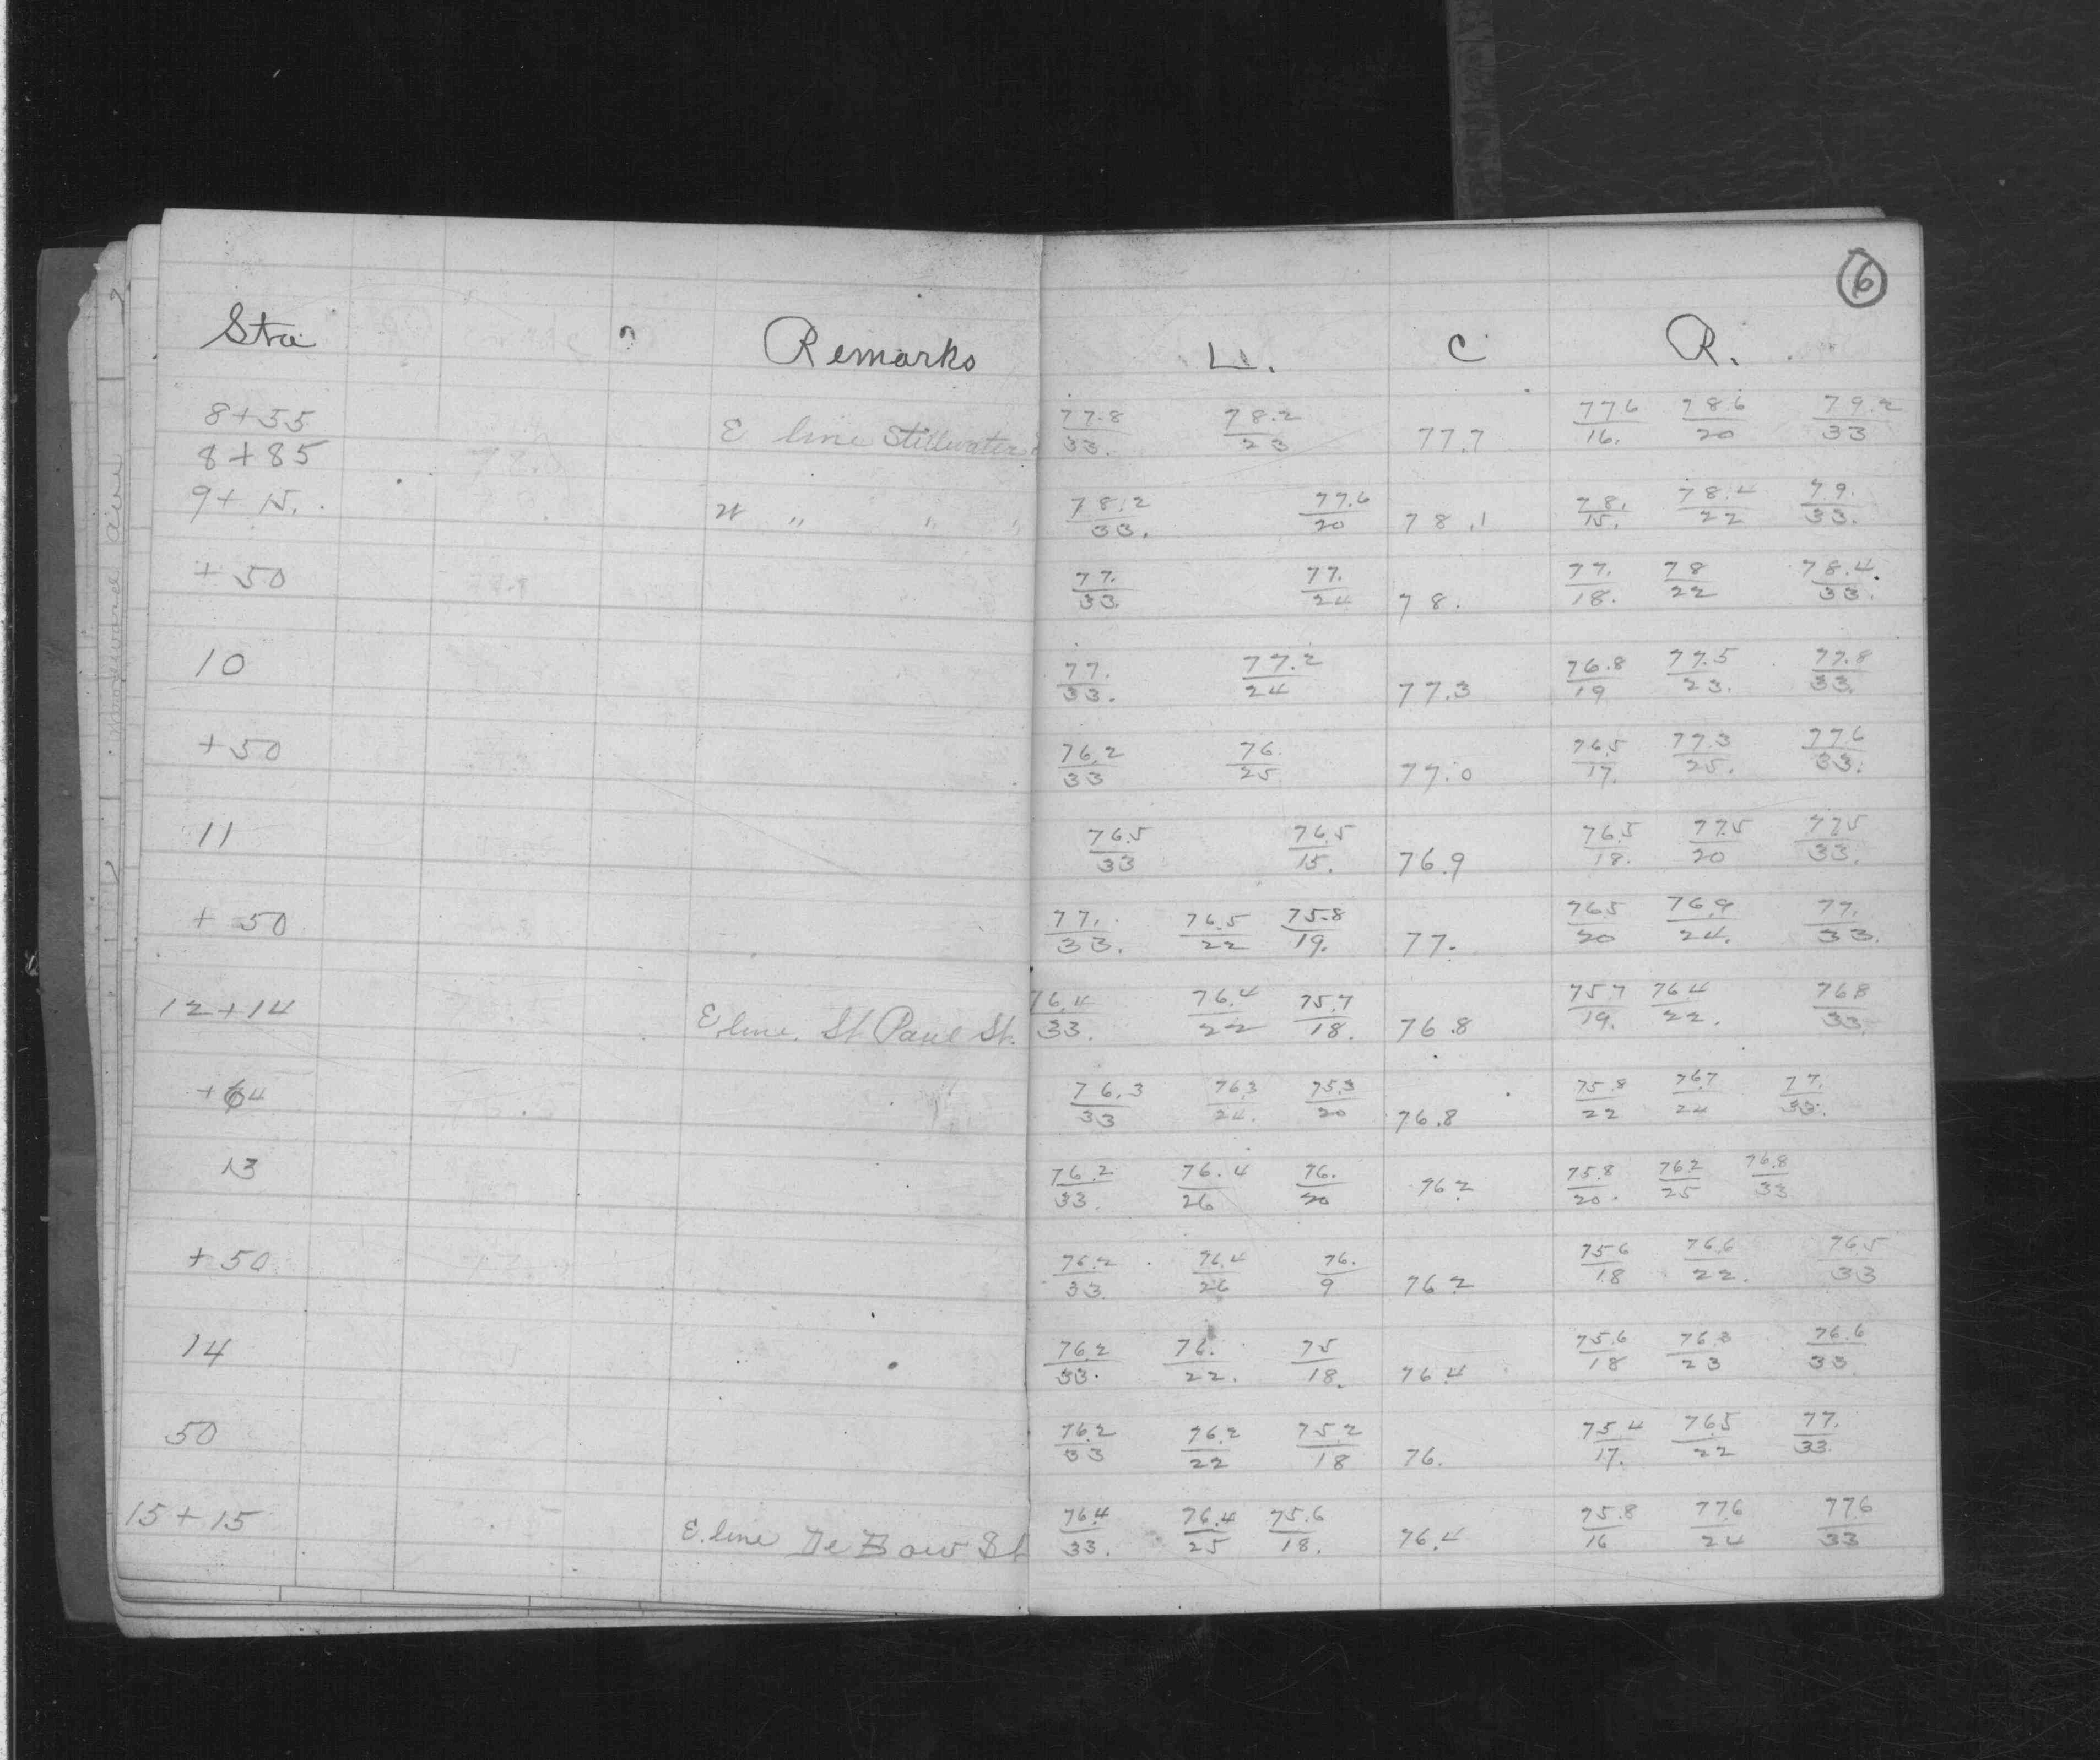 6
Sta Remarks L. C R.
8+55 E line Stillwater 77.8/33. 78.2/23 77.7 77.6/16. 78.6/20 79.2/33
8+85
9+15. W " " " 78.2/33. 77.6/20 78.1 78./15. 78.4/22 79./33.
+50 77./33. 77./24 78. 77./18. 78/22 78.4/33.
10 77./33. 77.2/24 77.3 76.8/19 77.5/23. 77.8/33.
+50 76.2/33 76./25 77.0 76.5/17. 77.3/25. 77.6/33.
11 76.5/33 76.5/15. 76.9 76.5/18. 77.5/20 77.5/33.
+50 77./33. 76.5/22 75.8/19. 77. 76.5/20 76.9/24. 77./33.
12+14 E line. St Paul St. 76.4/33. 76.4/22 75.7/18. 76.8 75.7/19. 76.4/22. 76.8/33.
+64 76.3/33 76.3/24. 75.3/20 76.8 75.8/22 76.7/24 77./33.
13 76.2/33. 76.4/26 76./20 76.2 75.8/20. 76.2/25 76.8/33
+50 76.2/33. 76.4/26 76./9 76.2 75.6/18 76.6/22. 76.5/33
14 76.2/33. 76./22. 75/18. 76.4 75.6/18 76.3/23 76.6/33
50 76.2/33 76.2/22 75.2/18 76. 75.4/17. 76.5/22 77./33.
15+15 E. line De Bow St 76.4/33. 76.4/25 75.6/18. 76.4 75.8/16 77.6/24 77.6/33